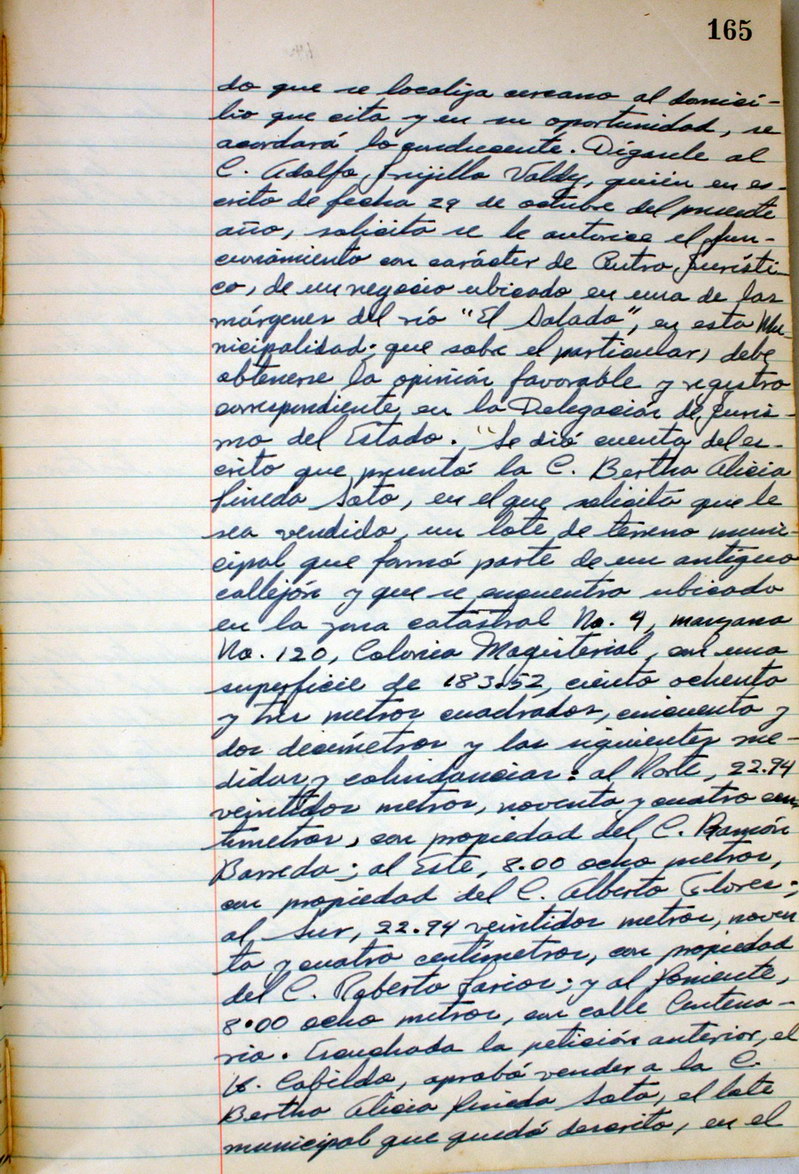 165
do que se localiza cercano al domici-
lio que cita y en su oportunidad, se
acordará lo conducente. Dígasele al
C. Adolfo Trujillo Valdez, quién en es-
crito de fecha 29 de octubre del presente
año, solicita se le autorice el fun-
cionamiento con carácter de Centro Turísti-
co, de un negocio ubicado en una de las
márgenes del río "El Salado", en esta Mu-
nicipalidad; que sobre el particular, debe
obtenerse la opinión favorable y registro
correspondiente, en la Delegación de Turis-
mo del Estado. "Se dió cuenta del es-
crito que presentó la C. Bertha Alicia
Pineda Soto, en el que solicita que le
sea vendido, un lote de terreno muni-
cipal que formó parte de un antiguo
callejón y que se encuentra ubicado
en la zona catastral No. 4, manzana
No. 120, Colonia Magisterial, con una
superficie de 183.52, ciento ochenta
y tres metros cuadrados, cincuenta y
dos decímetros y las siguientes me-
didas y colindancias: al Norte, 22.94
veintidos metros, noventa y cuatro cen-
tímetros, con propiedad del C. Ramón
Barreda; al Este, 8.00 ocho metros,
con propiedad del C. Alberto Flores;
al Sur, 22.94 veintidos metros, noven
ta y cuatro centímetros, con propiedad
del C. Roberto Larios; y al Poniente,
8.00 ocho metros, con calle Centena-
rio. Escuchada la petición anterior, el
H. Cabildo, aprobó vender a la C.
Bertha Alicia Pineda Soto, el lote
municipal que quedó descrito, en el